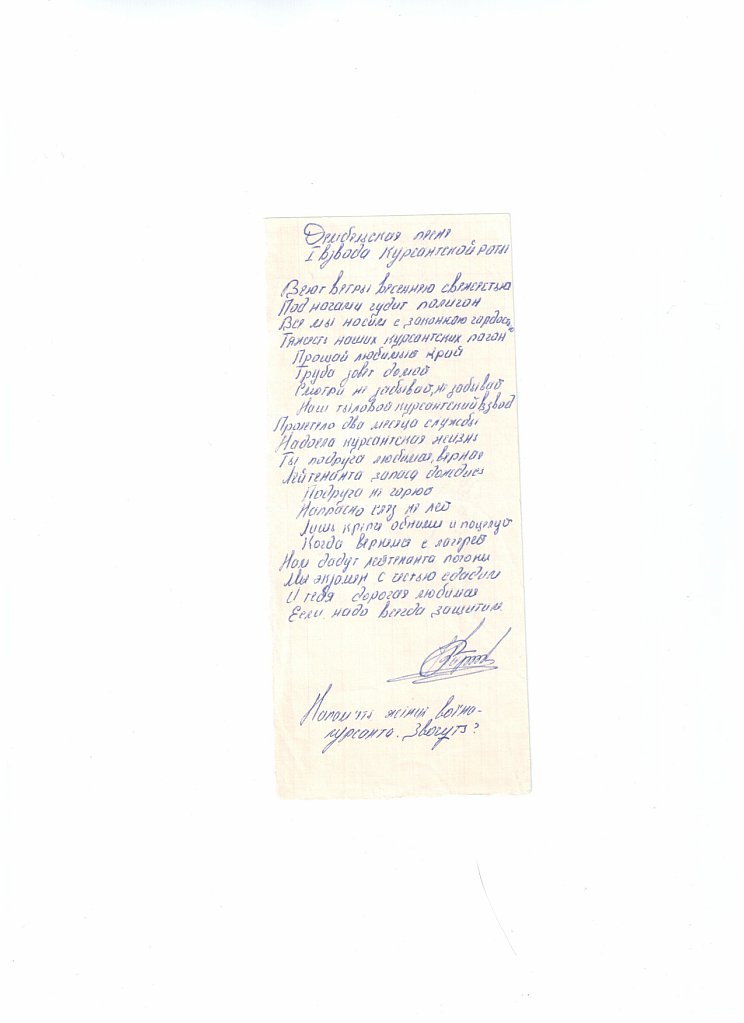 Дембельская песня
I взвода Курсантской роты
Веют ветры весеннею свежестью
Под ногами гудит полигон
Все мы носим с законною гордость
Тяжесть наших курсантских погон
Прощай любимый край
Труба зовет домой
Смотри не забывай, не забывай
Наш тыловой курсантский взвод
Пролетело два месяца службы
Надоела курсантская жизнь
Ты подруга любимая, верная
Лейтенанта запаса дождись
Подруга не горюй
Напрасно слез не лей
Лишь крепче обними и поцелуй
Когда вернемся с лагерей
Нам дадут лейтенанта погоны
Мы экзамен с честью сдадим
И тебя дорогая любимая
Если надо всегда защитим
воина-
курсанта.